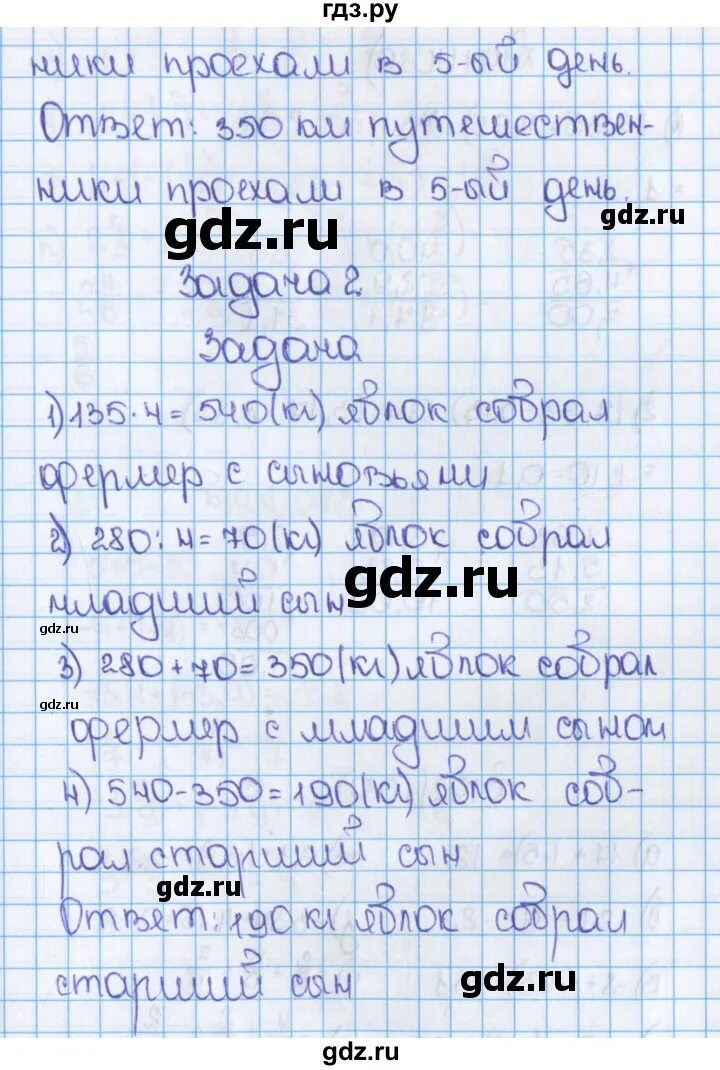 гдз.ру
ники проехали в 5-ый день.
Ответ: 350 км путешествен-
ники проехали в 5-ый день.
gdz.ru
gdz.ru
Задача 2
Задача
1) 135 · 4 = 540 (кг) яблок собрал
фермер с сыновьями
2) 280 : 4 = 70 (кг) яблок собрал
gdz.ru
младший сын
gdz.ru
3) 280 + 70 = 350 (кг) яблок собрал
gdz.ru
фермер с младшим сыном
4) 540 - 350 = 190 (кг) яблок соб-
рал старший сын
gdz.ru
Ответ: 190 кг яблок собрал
старший сын
gdz.ru
gdz.ru